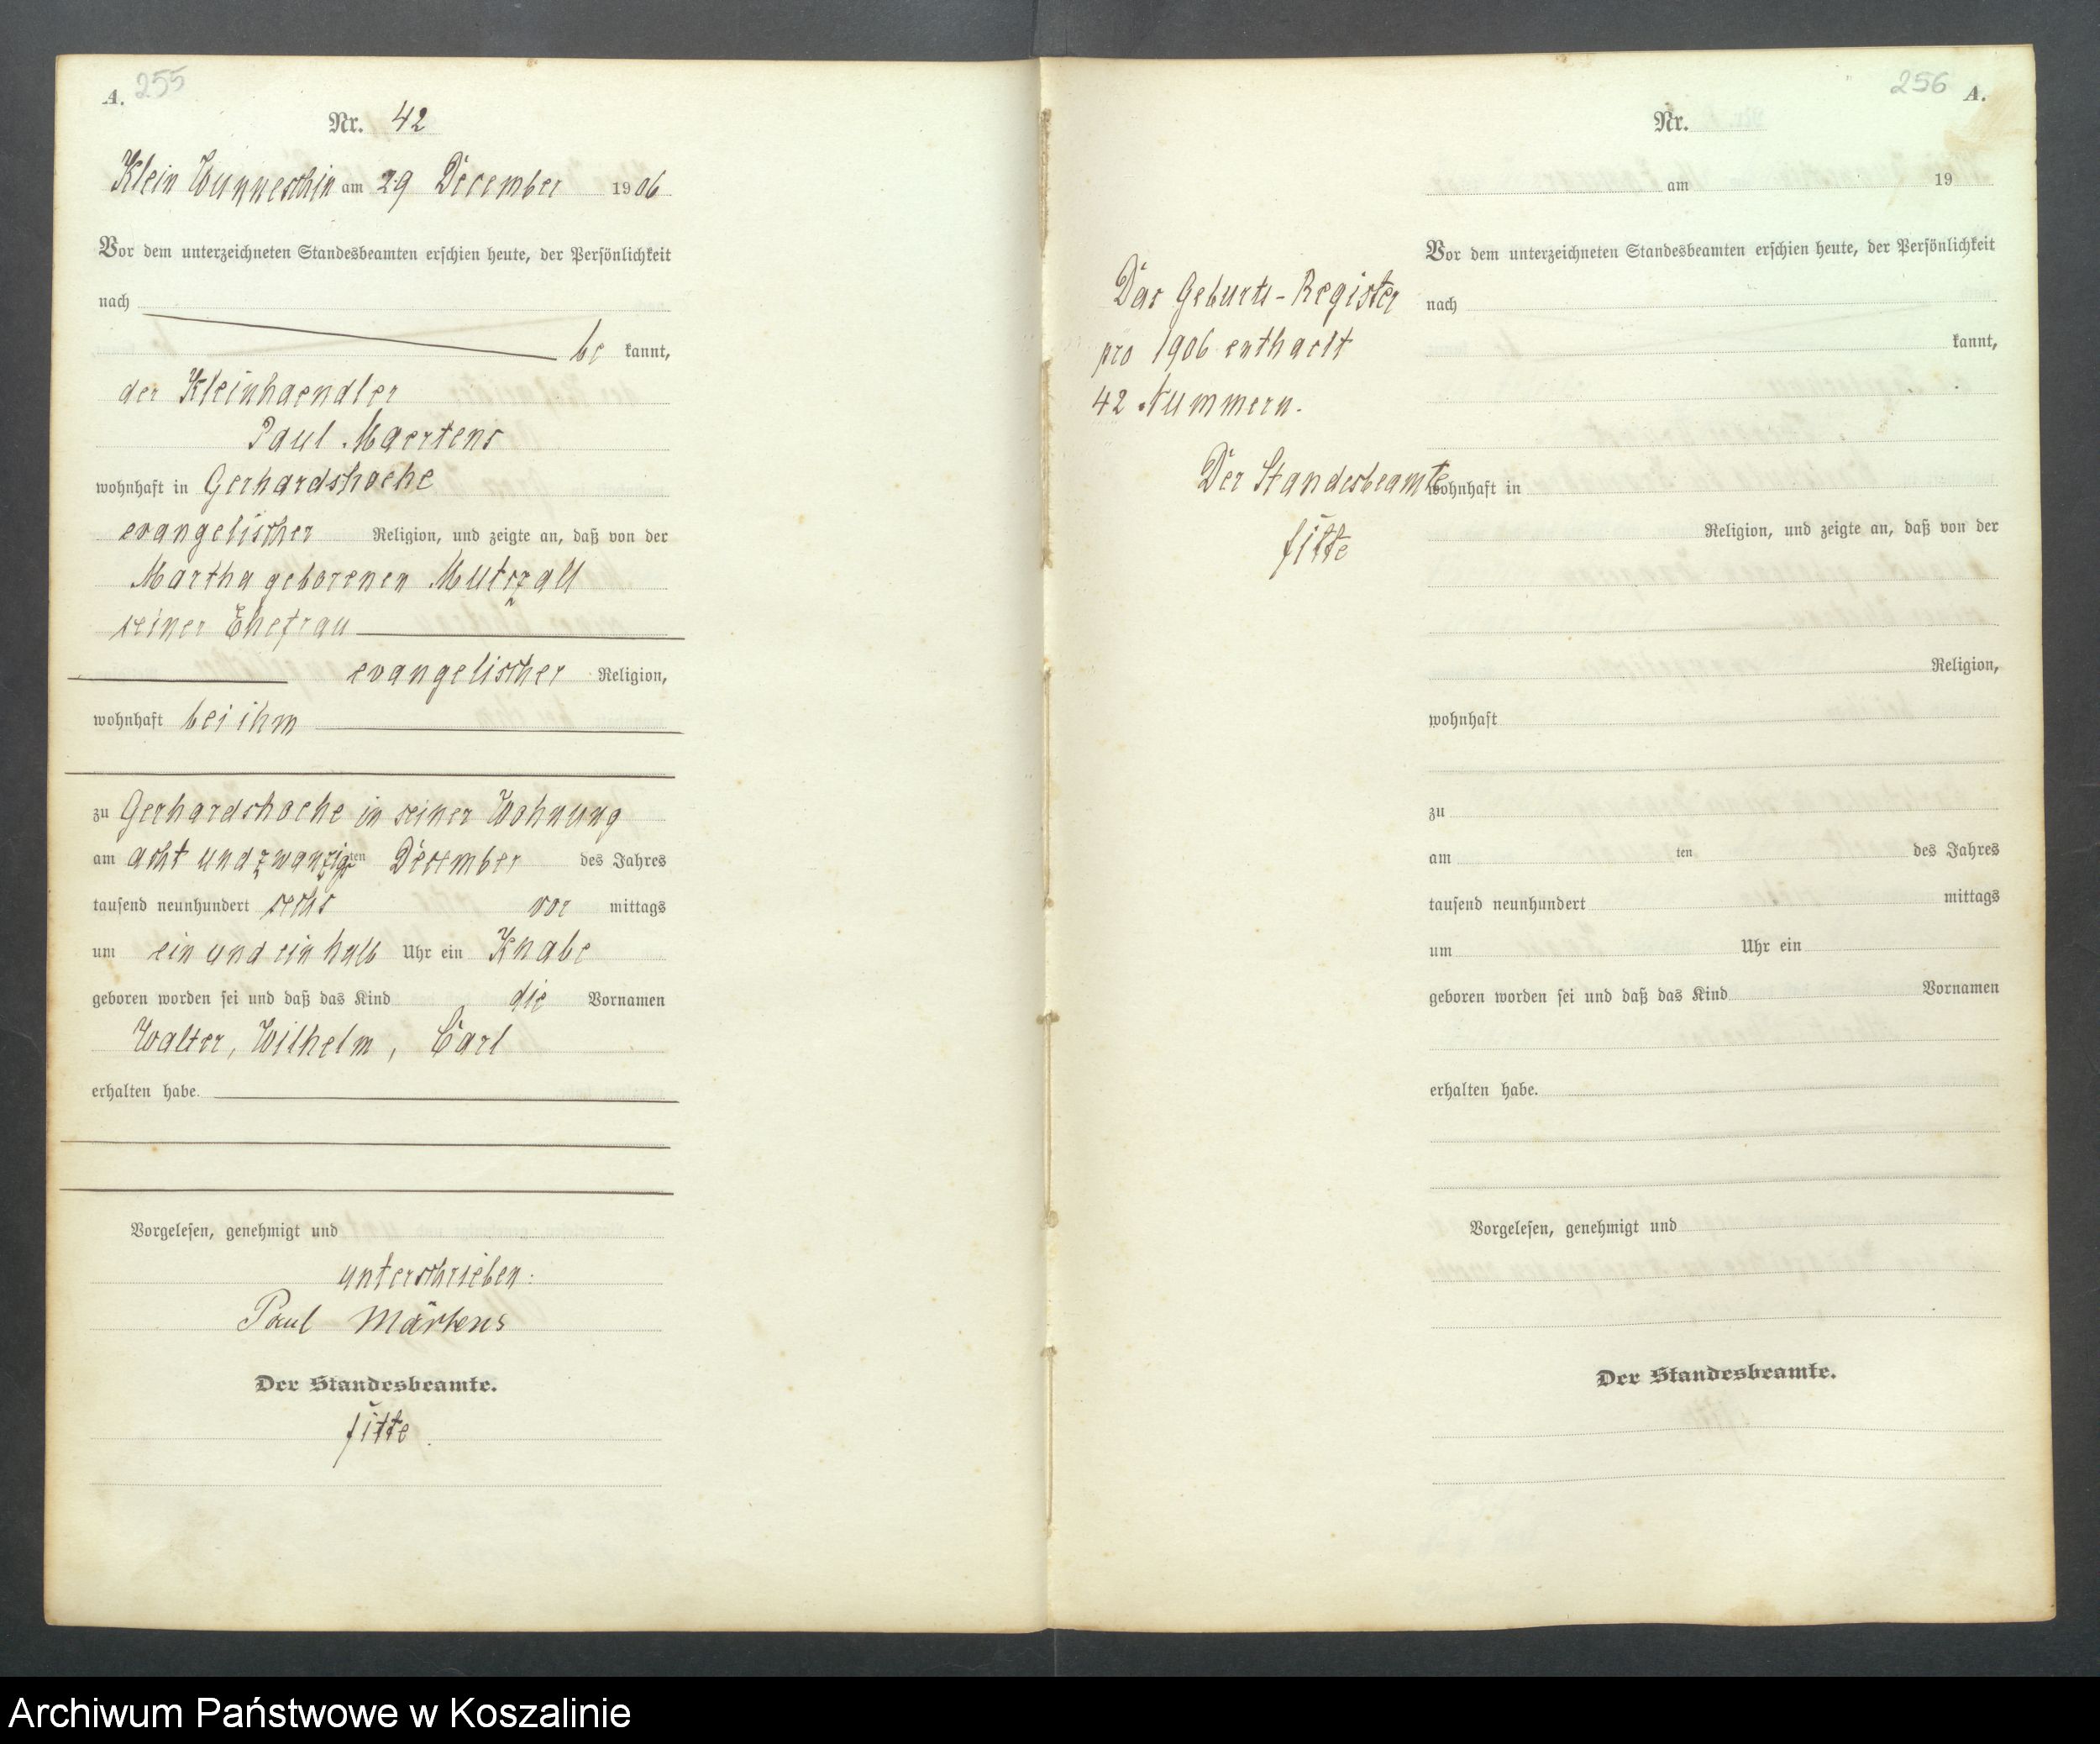 A. 255
Nr. 42
Klein Wunneschin am 29 December 1906
Vor dem unterzeichneten Standesbeamten erschien heute, der Persönlichkeit
nach
be kannt,
der Kleinhaendler
Paul Maertens
wohnhaft in Gerhardshoehe
evangelischer Religion, und zeigte an, daß von der
Martha geborenen Mutzall
seiner Ehefrau
evangelischer Religion,
wohnhaft bei ihm
zu Gerhardshoehe in seiner Wohnung
am acht und zwanzigten December des Jahres
tausend neunhundert sechs vor mittags
um ein und ein halb Uhr ein Knabe
geboren worden sei und daß das Kind die Vornamen
Walter, Wilhelm, Carl
erhalten habe.
Vorgelesen, genehmigt und
unterschrieben:
Paul Märtens
Der Standesbeamte.
Fitte.
256 A.
Nr.
am 19
Das Geburts-Register
pro 1906 enthaelt
42 Nummern.
Der Standesbeamte
Fitte
Vor dem unterzeichneten Standesbeamten erschien heute, der Persönlichkeit
nach
kannt,
wohnhaft in
Religion, und zeigte an, daß von der
Religion,
wohnhaft
zu
am ten des Jahres
tausend neunhundert mittags
um Uhr ein
geboren worden sei und daß das Kind Vornamen
erhalten habe.
Vorgelesen, genehmigt und
Der Standesbeamte.
Archiwum Państwowe w Koszalinie